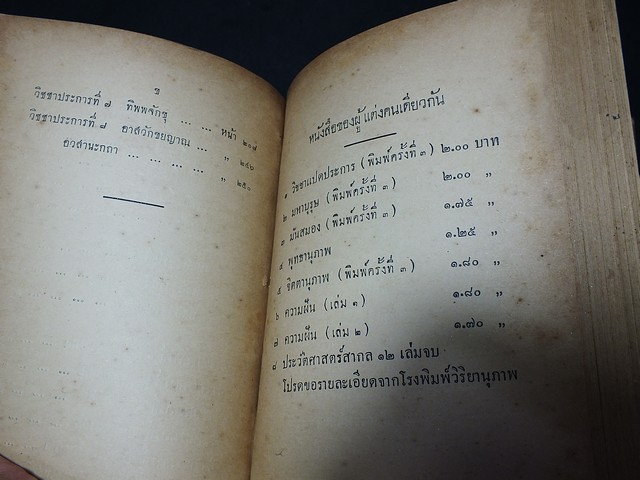 ช
วิชชาประการที่ ๗ ทิพพจักขุ ... ... หน้า ๒๐๘
วิชชาประการที่ ๘ อาสวักขยญาณ ... ,, ๒๔๖
อวสานะกถา ... ... ... ... ,, ๒๕๐
หนังสือของผู้แต่งคนเดียวกัน
๑ วิชชาแปดประการ (พิมพ์ครั้งที่ ๓) ๒.๐๐ บาท
๒ มหาบุรุษ (พิมพ์ครั้งที่ ๓) ๒.๐๐ ,,
๓ มันสมอง (พิมพ์ครั้งที่ ๓) ๑.๗๕ ,,
๔ พุทธานุภาพ ๑.๒๕ ,,
๕ จิตตานุภาพ (พิมพ์ครั้งที่ ๓) ๑.๘๐ ,,
๖ ความฝัน (เล่ม ๑) ๑.๘๐ ,,
๗ ความฝัน (เล่ม ๒) ๑.๗๐ ,,
๘ ประวัติศาสตร์สากล ๑๒ เล่มจบ
โปรดขอรายละเอียดจากโรงพิมพ์วิริยานุภาพ